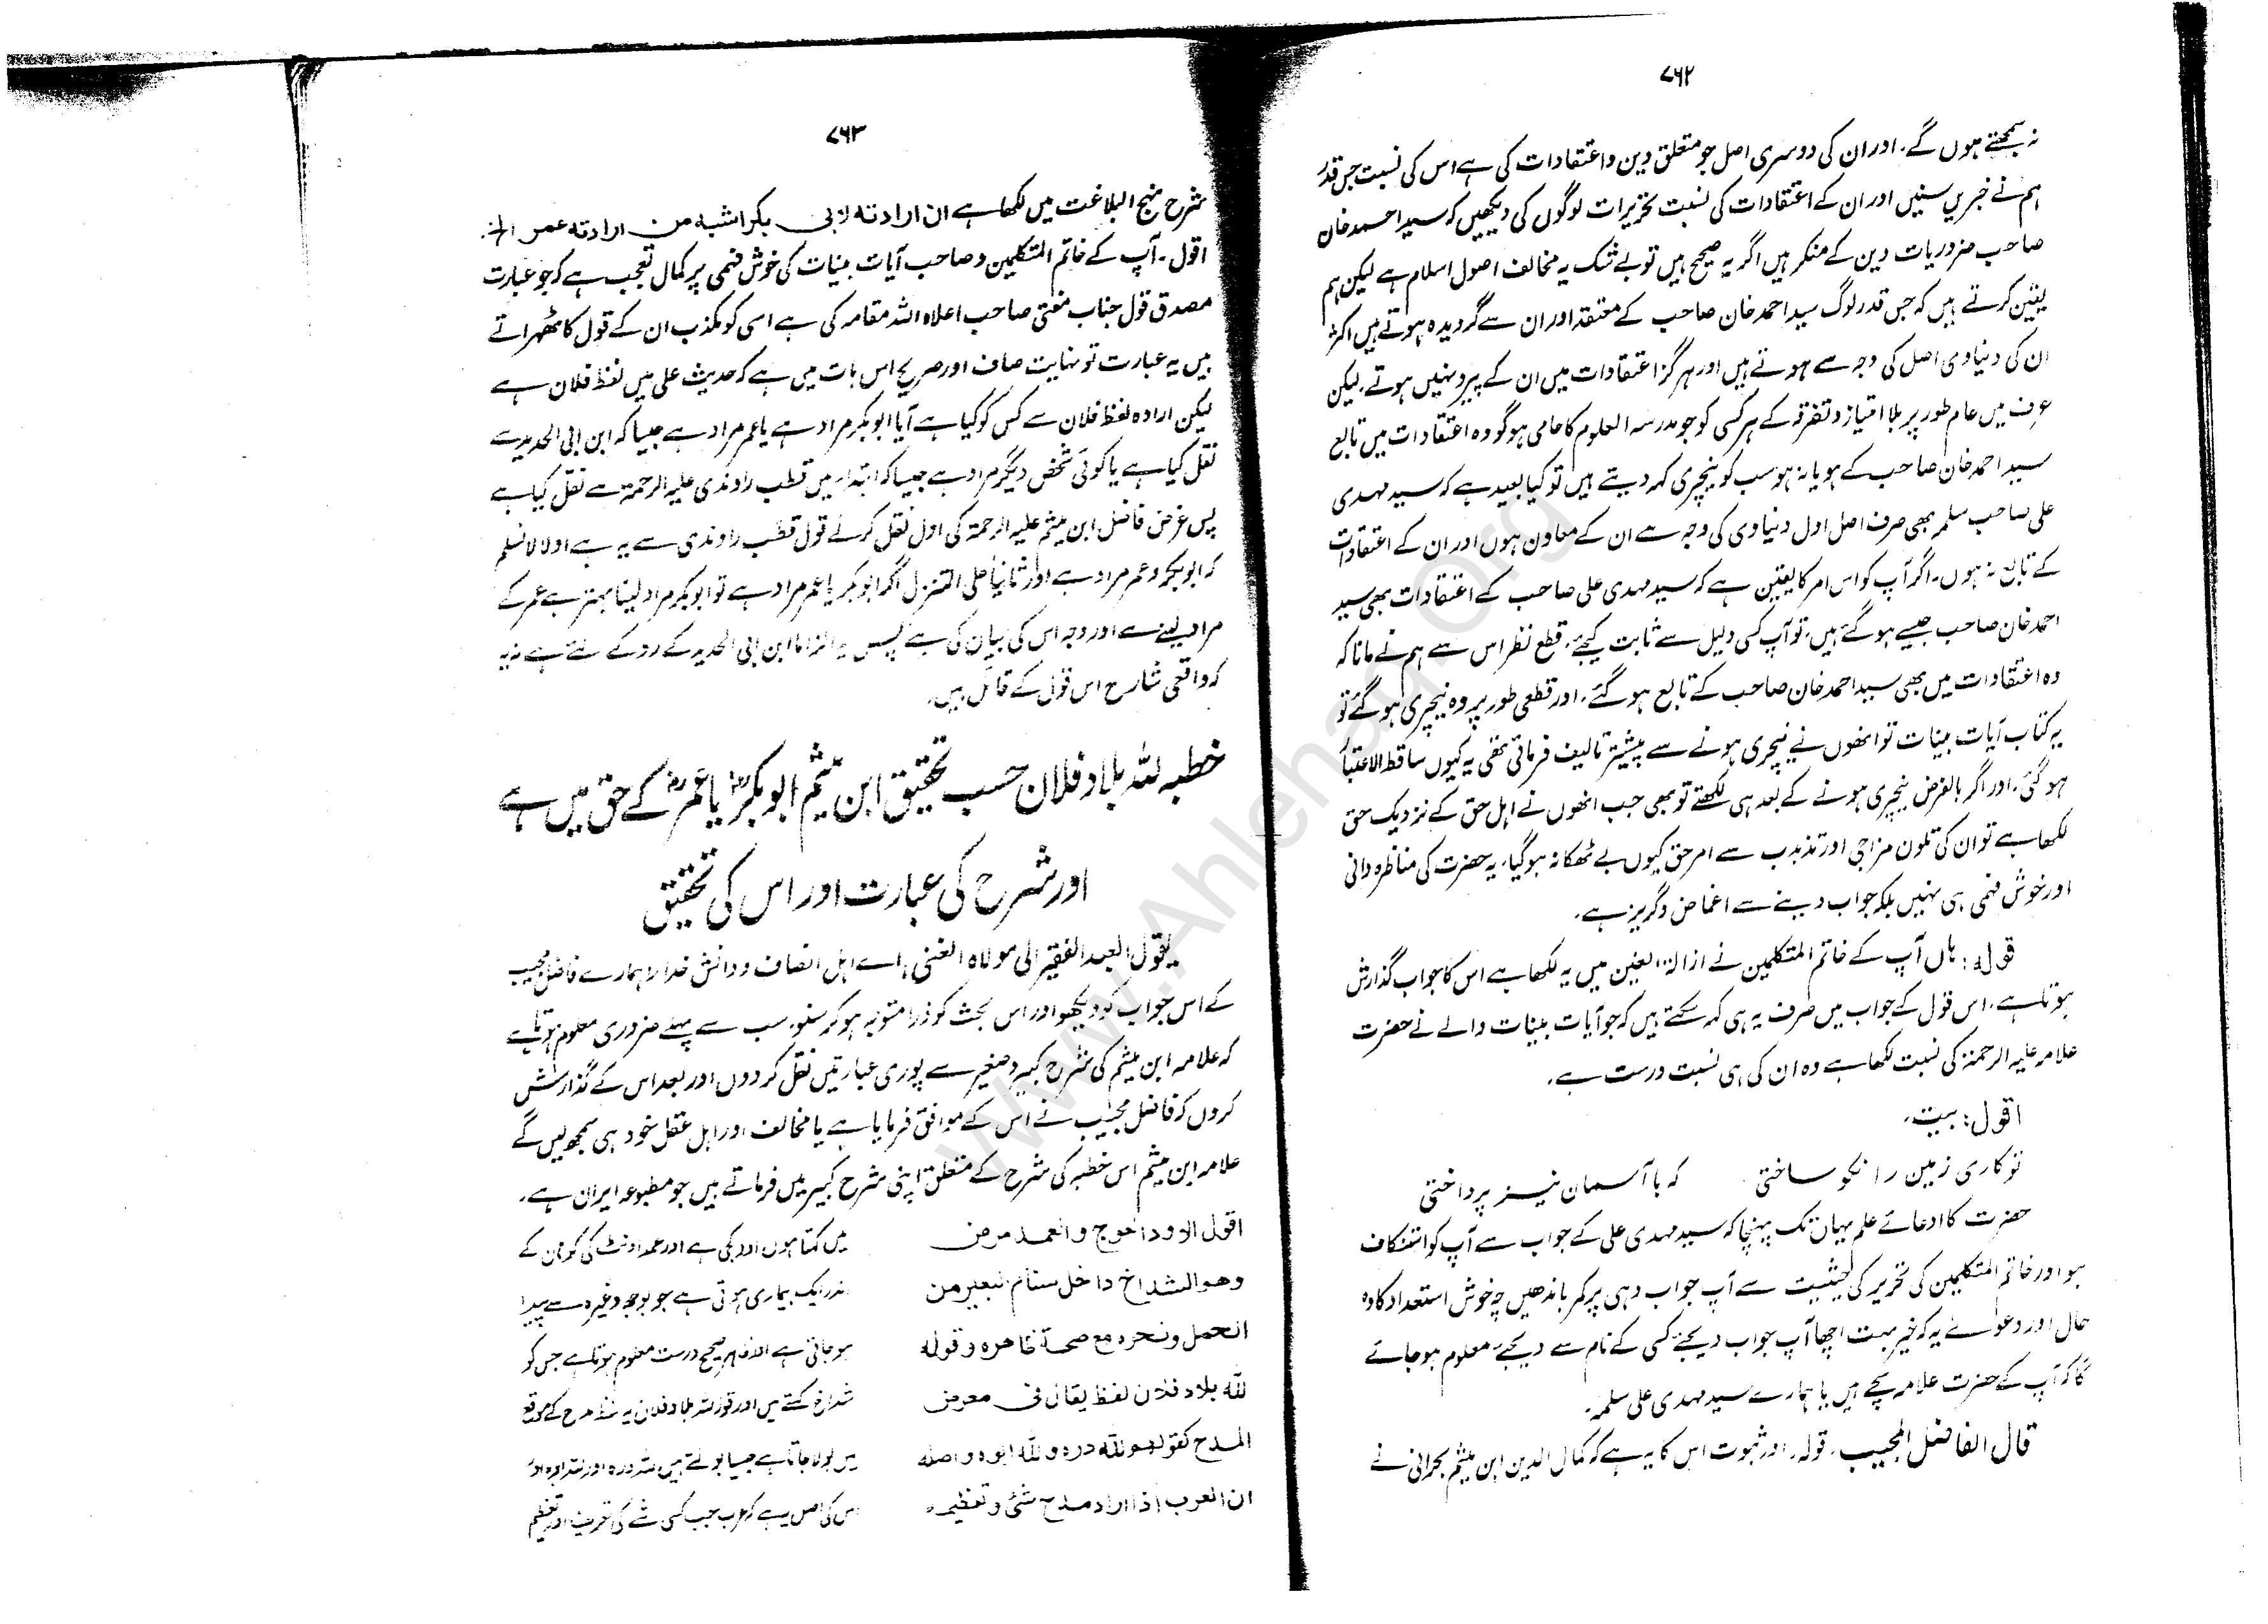 ۷۶۲
نہ سمجھتے ہوں گے. اور ان کی دوسری اصل جو متعلق دین و اعتقادات کی ہے اس کی نسبت جس قدر
ہم نے خبریں سنیں اور ان کے اعتقادات کی نسبت تحریرات لوگوں کی دیکھیں کہ سید احمد خان
صاحب ضروریات دین کے منکر ہیں اگر یہ صحیح ہیں تو بے شک یہ مخالف اصول اسلام ہے لیکن ہم
یقین کرتے ہیں کہ جس قدر لوگ سید احمد خان صاحب کے معتقد اور ان سے گرویدہ ہوتے ہیں اکثر
ان کی دنیاوی اصل کی وجہ سے ہوتے ہیں اور ہرگز اعتقادات میں ان کے پیرو نہیں ہوتے. لیکن
عرف میں عام طور پر بلا امتیاز و تفرقہ کے ہر کسی کو جو مدرسہ العلوم کا حامی ہو گو وہ اعتقادات میں تابع
سید احمد خان صاحب کے ہو یا نہ ہو سب کو نیچری کہہ دیتے ہیں تو کیا بعید ہے کہ سید مہدی
علی صاحب سلمہ بھی صرف اصل اول دنیاوی کی وجہ سے ان کے معاون ہوں اور ان کے اعتقادات
کے تابع نہ ہوں. اگر آپ کو اس امر کا یقین ہے کہ سید مہدی علی صاحب کے اعتقادات بھی سید
احمد خان صاحب جیسے ہو گئے ہیں، تو آپ کسی دلیل سے ثابت کیجئے. قطع نظر اس سے ہم نے مانا کہ
وہ اعتقادات میں بھی سید احمد خان صاحب کے تابع ہو گئے. اور قطعی طور پر وہ نیچری ہو گئے تو
یہ کتاب آیات بینات تو انھوں نے نیچری ہونے سے پیشتر تالیف فرمائی تھی یہ کیوں ساقط الاعتبار
ہو گئی. اور اگر بالفرض نیچری ہونے کے بعد ہی لکھتے تو بھی جب انھوں نے اہل حق کے نزدیک حق
لکھا ہے تو ان کی تلون مزاجی اور تذبذب سے امر حق کیوں بے ٹھکانہ ہو گیا. یہ حضرت کی مناظرہ دانی
اور خوش فہمی ہی نہیں بلکہ جواب دینے سے اغماض و گریز ہے.
قولہ: ہاں آپ کے خاتم المتکلمین نے ازالۃ الغین میں یہ لکھا ہے اس کا جواب گذارش
ہوتا ہے. اس قول کے جواب میں صرف یہ ہی کہہ سکتے ہیں کہ جو آیات بینات والے نے حضرت
علامہ علیہ الرحمۃ کی نسبت لکھا ہے وہ ان کی ہی نسبت درست ہے.
اقول: بیت.
تو کاری زمین را نکو ساختی کہ با آسمان نیز پرداختی
حضرت کا ادعائے علم یہاں تک پہنچا کہ سید مہدی علی کے جواب سے آپ کو استنکاف
ہو اور خاتم المتکلمین کی تحریر کی حیثیت سے آپ جواب دہی پر کمر باندھیں چہ خوش استعداد کا وہ
حال اور دعویٰ یہ کہ خیر بہت اچھا آپ جواب دیجئے کسی کے نام سے دیجئے معلوم ہو جائے
گا کہ آپ کے حضرت علامہ سچے ہیں یا ہمارے سید مہدی علی سلمہ.
قال الفاضل المجیب. قولہ. اور ثبوت اس کا یہ ہے کہ کمال الدین ابن میثم بحرانی نے
۷۶۳
شرح منہج البلاغت میں لکھا ہے ان ارادتہ لابی بکر اشبہ من ارادتہ عمر الخ.
اقول. آپ کے خاتم المتکلمین و صاحب آیات بینات کی خوش فہمی پر کمال تعجب ہے کہ جو عبارت
مصدق قول جناب مفتی صاحب اعلاہ اللہ مقامہ کی ہے اسی کو مکذب ان کے قول کا ٹھہراتے
ہیں یہ عبارت تو نہایت صاف اور صریح اس بات میں ہے کہ حدیث علی میں لفظ فلان ہے
لیکن ارادہ لفظ فلان سے کس کو کیا ہے آیا ابوبکر مراد ہے یا عمر مراد ہے جیسا کہ ابن ابی الحدید سے
نقل کیا ہے یا کوئی شخص دیگر مراد ہے جیسا کہ ابتداء میں قطب راوندی علیہ الرحمۃ سے نقل کیا ہے
پس غرض فاضل ابن میثم علیہ الرحمۃ کی اول نقل کرنے قول قطب راوندی سے یہ ہے اولا لا نسلم
کہ ابوبکر و عمر مراد ہے اور ثانیاً علی التنزل اگر ابوبکر یا عمر مراد ہے تو ابوبکر مراد لینا بہتر ہے عمر کے
مراد لینے سے اور وجہ اس کی بیان کی ہے پس یہ الزاما ابن ابی الحدید کے رد کے لئے ہے نہ یہ
کہ واقعی شارح اس قول کے قائل ہیں.
خطبہ للہ بلاد فلان حسب تحقیق ابن میثم ابوبکرؓ یا عمرؓ کے حق میں ہے
اور شرح کی عبارت اور اس کی تحقیق
یقول العبد الفقیر الی مولاہ الغنی. اے اہل انصاف و دانش خدارا ہمارے فاضل مجیب
کے اس جواب کو دیکھو اور اس بحث کو ذرا متوجہ ہو کر سنو. سب سے پہلے ضروری معلوم ہوتا ہے
کہ علامہ ابن میثم کی شرح کبیر و صغیر سے پوری عبارتیں نقل کر دوں اور بعد اس کے گذارش
کروں کہ فاضل مجیب نے اس کے موافق فرمایا ہے یا مخالف اور اہل عقل خود ہی سمجھ لیں گے
علامہ ابن میثم اس خطبہ کی شرح کے متعلق اپنی شرح کبیر میں فرماتے ہیں جو مطبوعہ ایران ہے.
اقول الاود العوج والعمد مرض
وهو انشداخ داخل سنام البعير من
الحمل ونحوه مع صحة ظاهره وقوله
لله بلاد فلان لفظ يقال في معرض
المدح كقولهم لله دره ولله ابوه واصله
ان العرب اذا اراد مدح شئ وتعظيمه
میں کہتا ہوں اود کجی ہے اور عمد اونٹ کی کوہان کے
اندر ایک بیماری ہوتی ہے جو بوجھ وغیرہ سے پیدا
ہو جاتی ہے اور ظاہر صحیح درست معلوم ہوتا ہے جس کو
شداخ کہتے ہیں اور قولہ للہ بلاد فلان یہ لفظ مدح کے موقع
میں بولا جاتا ہے جیسا بولتے ہیں للہ درہ اور للہ ابوہ اور
اس کی اصل یہ ہے کہ عرب جب کسی شے کی تعریف اور تعظیم
www.Ahlehaq.Org